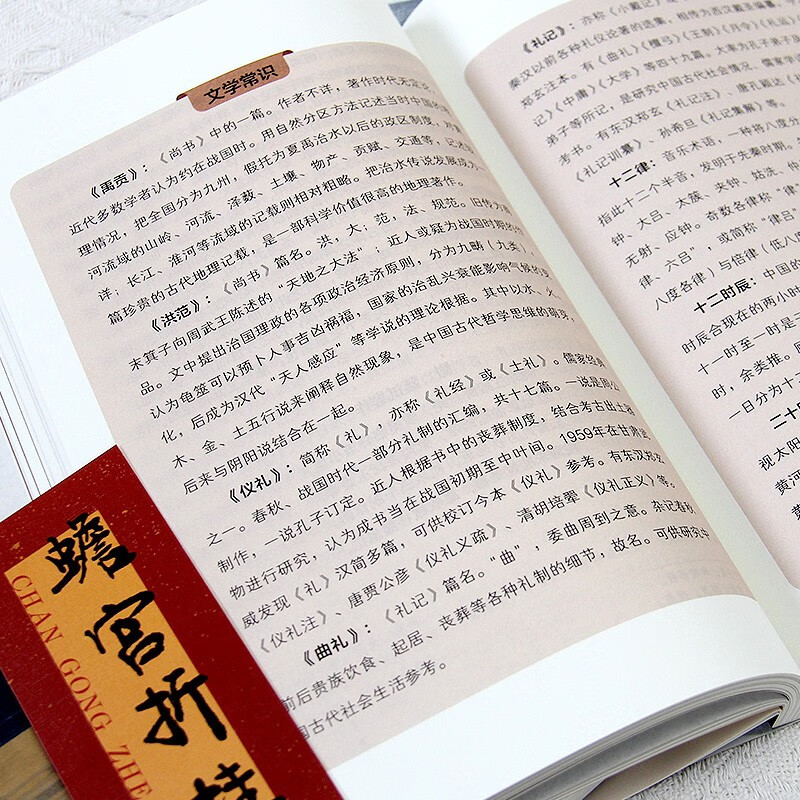 文学常识
《禹贡》：《尚书》中的一篇。作者不详，著作时代无定论，
近代多数学者认为约在战国时。用自然分区方法记述当时中国的
理情况，把全国分为九州，假托为夏禹治水以后的政区制度，
河流域的山岭、河流、泽薮、土壤、物产、贡赋、交通等，记述
详；长江、淮河等流域的记载则相对粗略。把治水传说发展成
篇珍贵的古代地理记载，是一部科学价值很高的地理著作。
《洪范》：《尚书》篇名。洪，大；范，法、规范。旧传为
末箕子向周武王陈述的“天地之大法”；近人或疑为战国时期的
品。文中提出治国理政的各项政治经济原则，分为九畴（九类）
认为龟筮可以预卜人事吉凶祸福，国家的治乱兴衰能影响气候的
化，后成为汉代“天人感应”等学说的理论根据。其中以水、火、
木、金、土五行说来阐释自然现象，是中国古代哲学思维的萌芽，
后来与阴阳说结合在一起。
《仪礼》：简称《礼》，亦称《礼经》或《士礼》。儒家经典
之一。春秋、战国时代一部分礼制的汇编，共十七篇。一说是周公
制作，一说孔子订定。近人根据书中的丧葬制度，结合考古出土器
物进行研究，认为成书当在战国初期至中叶间。1959年在甘肃武
威发现《礼》汉简多篇，可供校订今本《仪礼》参考。有东汉郑玄
《仪礼注》、唐贾公彦《仪礼义疏》、清胡培翚《仪礼正义》等。
《曲礼》：《礼记》篇名。“曲”，委曲周到之意。杂记春秋
前后贵族饮食、起居、丧葬等各种礼制的细节，故名。可供研究中
国古代社会生活参考。
《礼记》：亦称《小戴记》或
秦汉以前各种礼仪论著的选集，相传为西汉戴圣编纂
郑玄注本。有《曲礼》《檀弓》《王制》《月令》《礼运》
记》《中庸》《大学》等四十九篇，大率为孔子弟子及
弟子等所记，是研究中国古代社会情况、儒家学
考书。有东汉郑玄《礼记注》、唐孔颖达《
《礼记训纂》、孙希旦《礼记集解》等。
十二律：音乐术语，一种将八度分
指此十二个半音，发明于先秦时期。
钟、大吕、太簇、夹钟、姑洗、仲
无射、应钟。奇数各律称“律
律、六吕”，或简称“律吕
八度各律）与倍律（低八度
十二时辰：中国的
时辰合现在的两小时
十一时至一时是子
时，余类推。
一日分为十
二十
视太阳
黄河
蟾宫折桂
CHAN GONG ZHE